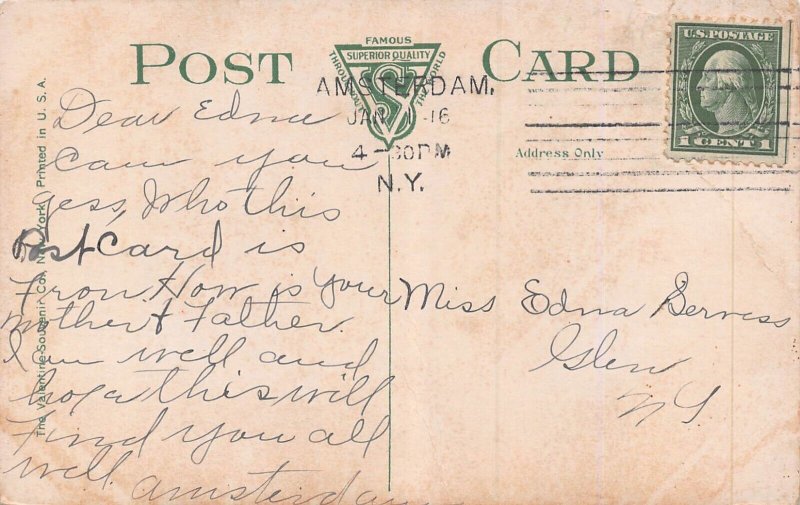 POST CARD
FAMOUS
SUPERIOR QUALITY
THROUGHOUT THE WORLD
AMSTERDAM,
JAN 1 16
4-30PM
N.Y.
U.S. POSTAGE
1 CENT 1
Address Only
The Valentine-Souvenir Co., New York, Printed in U. S. A.
Dear Edna
Cam you
gess, Who this
Post Card is
From How is your
Mother & Father.
I am well and
hope this will
Find you all
well Amsterdam
Miss Edna Serviss
Glen
NY.